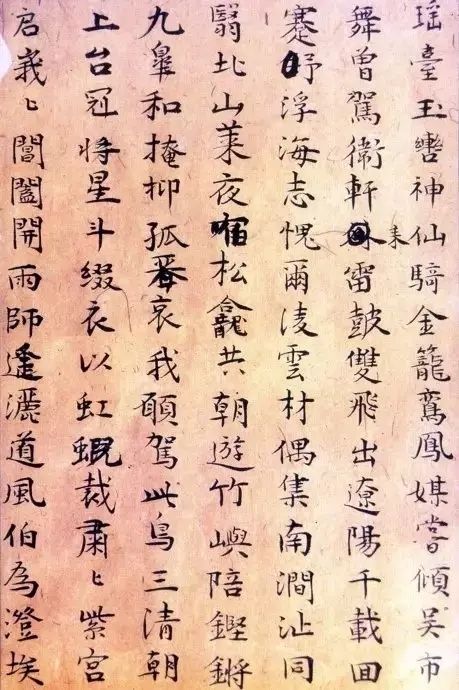 瑶臺玉轡神仙騎金籠鸞鳳媒嘗傾吴市
舞曾駕衛軒来雷鼓雙飛出遼陽千載回
蹇予浮海志愧爾淩雲材偶集南澗沚同
翳北山萊夜宿松龕共朝遊竹嶼陪鏗鏘
九皋和掩抑孤哀我願駕此鳥三清朝
上台冠將星斗綴衣以虹蜺裁肅〻紫宮
启峩〻閶闔開雨師逢灑道風伯為澄埃